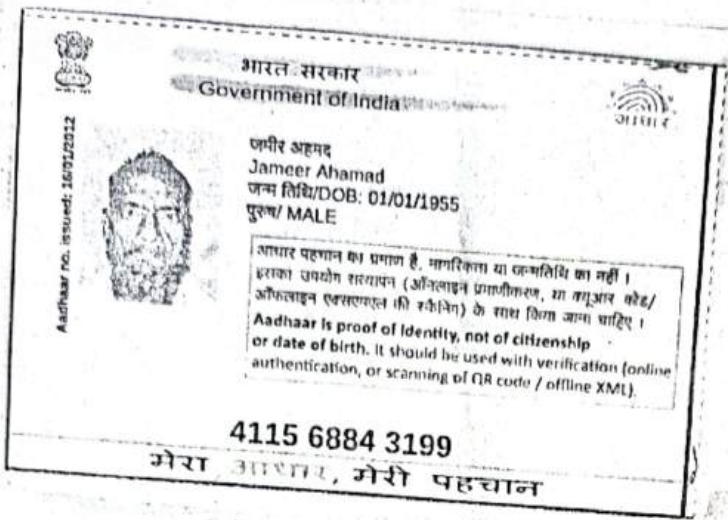 भारत सरकार
Government of India
आधार
Aadhaar no. issued: 16/01/2012
जमीर अहमद
Jameer Ahamad
जन्म तिथि/DOB: 01/01/1955
पुरुष/ MALE
आधार पहचान का प्रमाण है, नागरिकता या जन्मतिथि का नहीं ।
इसका उपयोग सत्यापन (ऑनलाइन प्रमाणीकरण, या क्यूआर कोड/
ऑफलाइन एक्सएमएल की स्कैनिंग) के साथ किया जाना चाहिए ।
Aadhaar is proof of identity, not of citizenship
or date of birth. It should be used with verification (online
authentication, or scanning of QR code / offline XML).
4115 6884 3199
मेरा आधार, मेरी पहचान